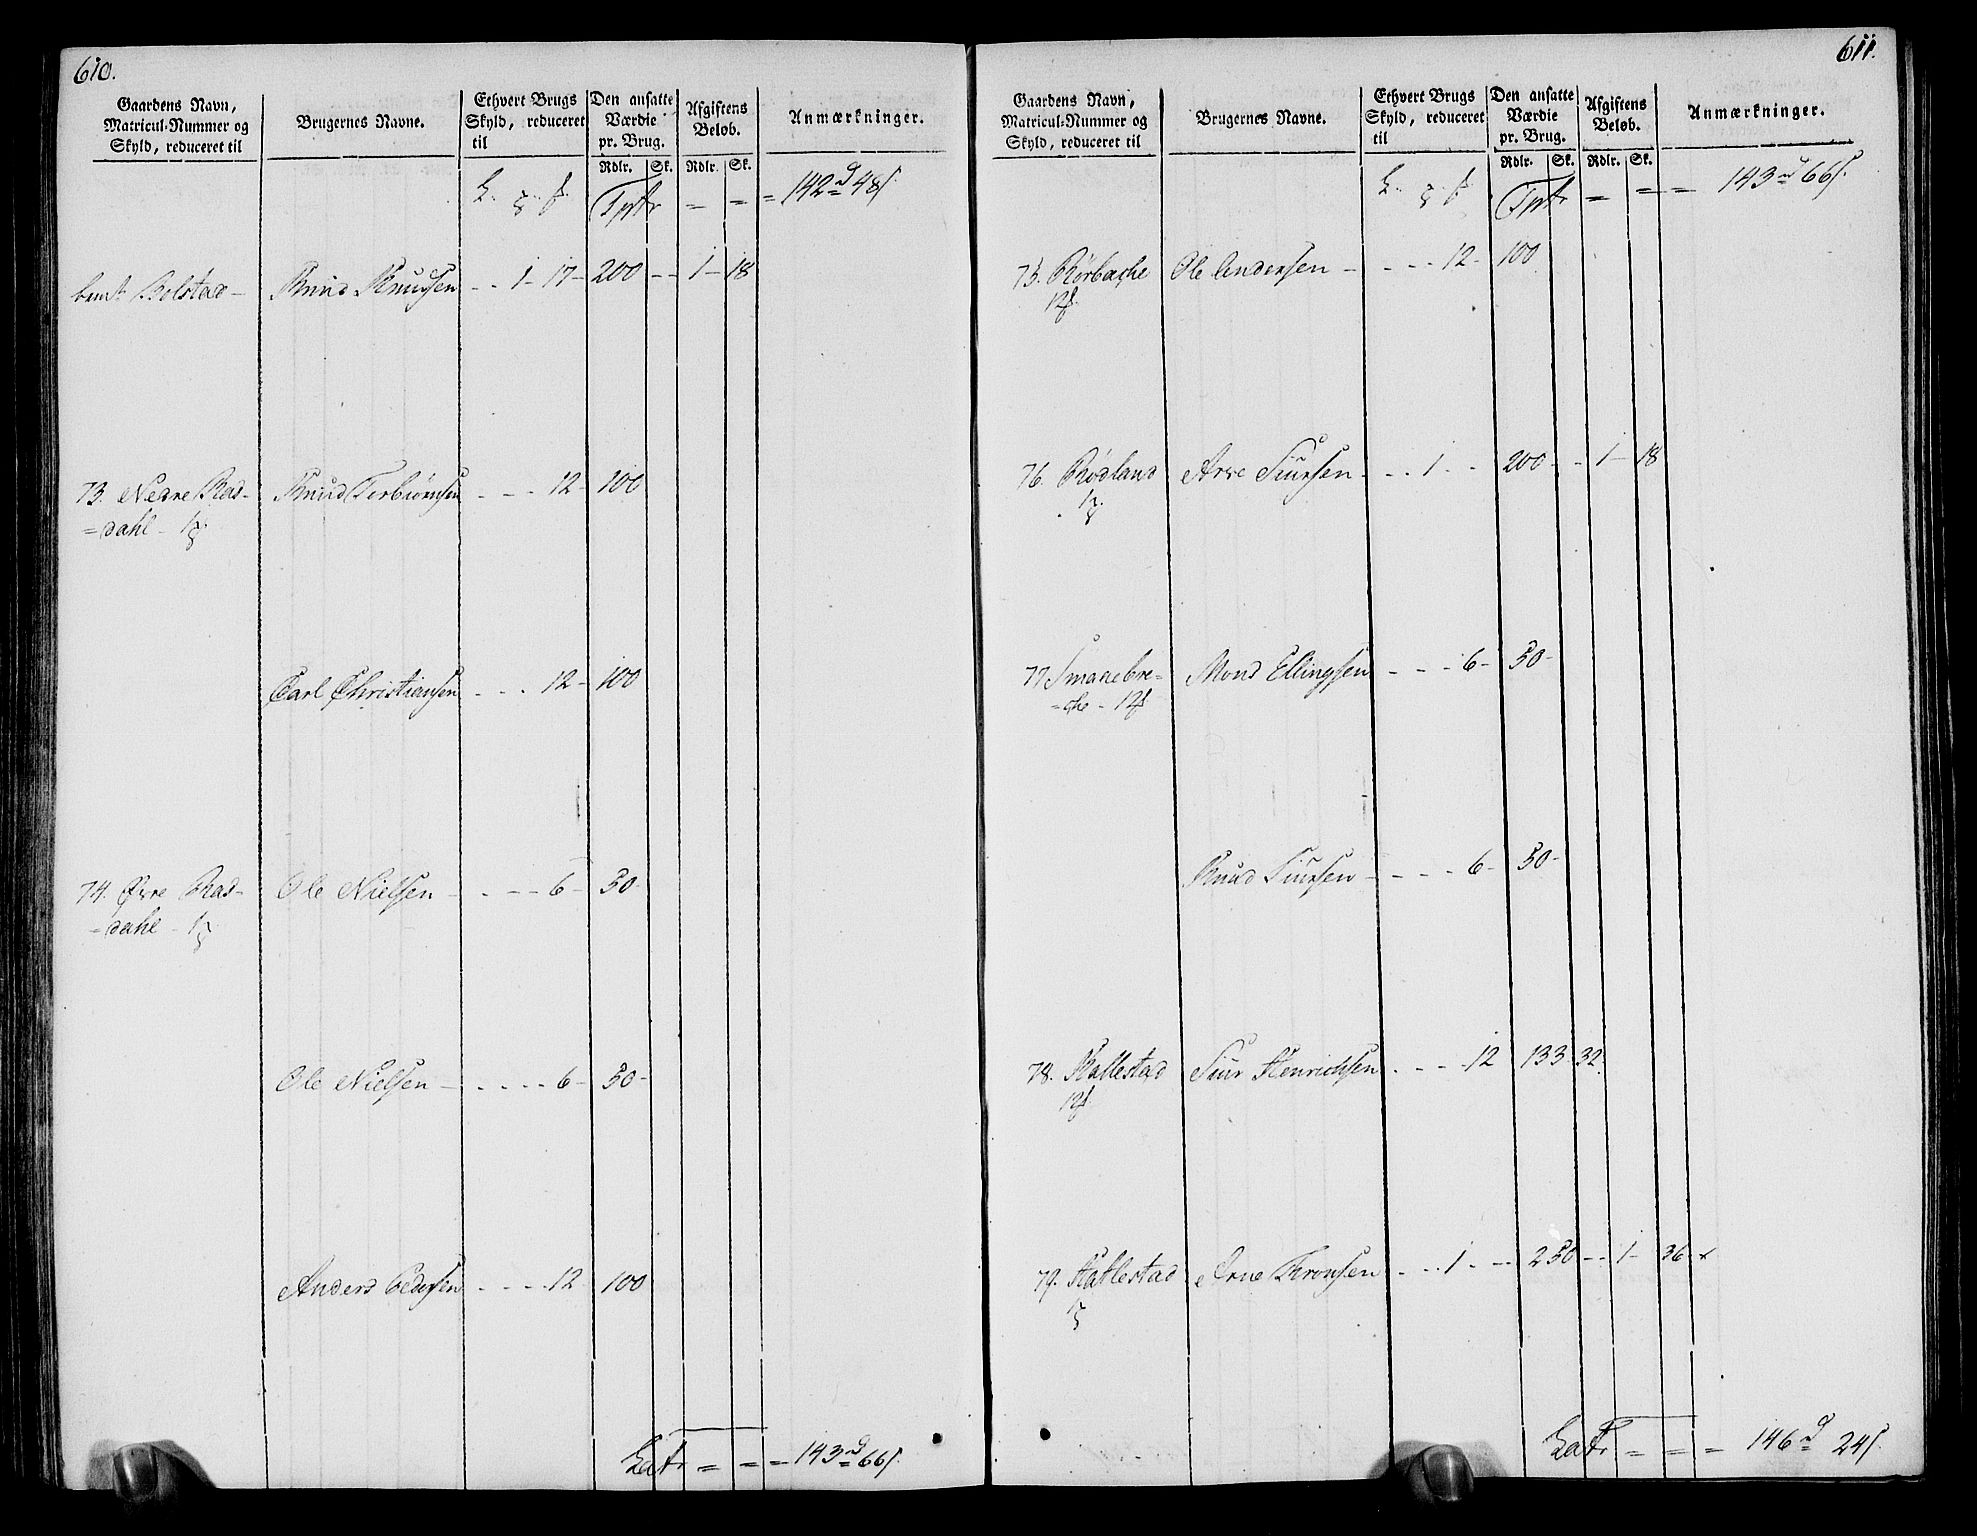 610.
Gaardens Navn, Matricul-Nummer og Skyld, reduceret til | Brugernes Navne. | Ethvert Brugs Skyld, reduceret til | Den ansatte Værdie pr. Brug. | Afgiftens Beløb. | Anmærkninger.
Rdlr. Sk. Rdlr. Sk.
Tptr = = = 142 48
Bolstad - Knud Knudsen - - 1 - 17 - 200 - - 1 - 18
73. Nedre Rad- Knud Torbiørnsen - - - 12 - 100
=dahl - 1
Carl Christiansen - - - 12 - 100
74. Øvre Rad- Ole Nielsen - - - - 6 - 50 -
=dahl - 1
Ole Nielsen - - - - - 6 - 50 -
Anders Pedersen - - - - 12 - 100
Latr = = = 143 66
611.
Gaardens Navn, Matricul-Nummer og Skyld, reduceret til | Brugernes Navne. | Ethvert Brugs Skyld, reduceret til | Den ansatte Værdie pr. Brug. | Afgiftens Beløb. | Anmærkninger.
Rdlr. Sk. Rdlr. Sk.
Tptr = = = 143 66
75. Rørbache Ole Andersen - - - - 12 - 100
12
76. Rødland Arve Siursen - - - 1 - - 200 - - 1 - 18
1
77 Smanebre= Mons Ellingsen - - - 6 - 50 -
=che - 12
Knud Siursen - - - - 6 - 50 -
78. Hatlestad Siur Henrichsen - - - - 12 133 32.
12
79. Hatlestad Arne Thronsen - - - 1 - - - 250 - - 1 - 36
1
Latr = = = 146 24